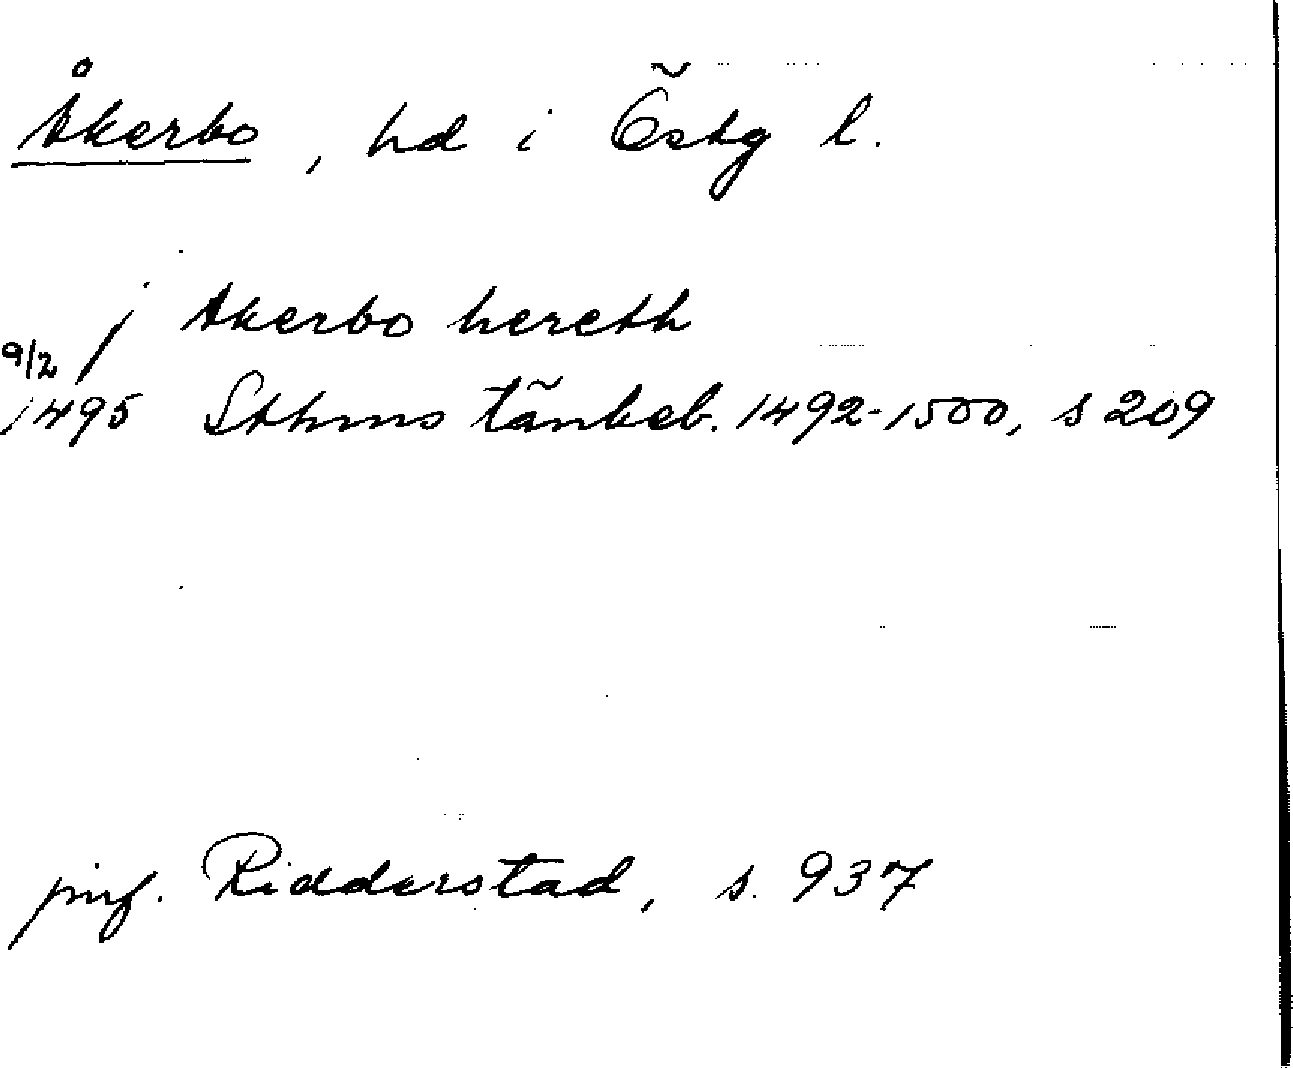 Åkerbo, hd i Östg l.
j Akerbo hereth
9/2
1495 Sthms tänkeb. 1492-1500, s 209
jmf. Ridderstad, s. 937